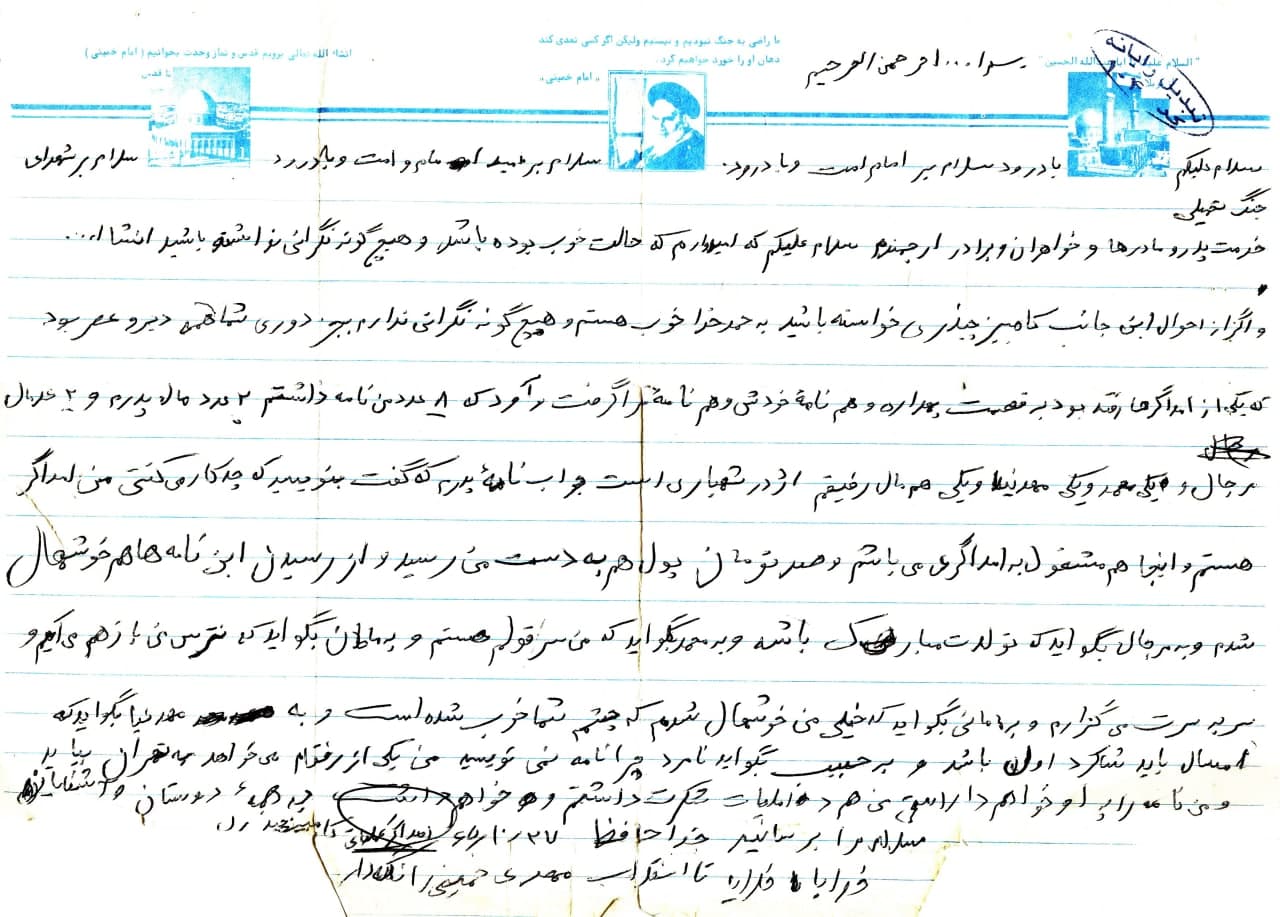 انشاء الله تعالی برویم قدس و نماز وحدت بخوانیم (امام خمینی)
ما راضی به جنگ نبودیم و نیستیم ولیکن اگر کسی تعدی کند
دهان او را خورد خواهیم کرد.
« امام خمینی »
"السلام علیک یا اباعبدالله الحسین"
تبدیل رایانه
بسم ا... الرحمن الرحیم
سلام علیکم با درود سلام بر امام امت و با درود سلام بر امام و امت و با درود سلام بر شهدای
جنگ تحمیلی
خدمت پدر و مادرها و خواهران و برادر ارجمندم سلام علیکم که امیدوارم که حالت خوب بوده باشد و هیچ گونه نگرانی نداشته باشید انشا ا...
و اگر از احوال این جانب کامبیز چیذری خواسته باشید به حمد خدا خوب هستم و هیچ گونه نگرانی ندارم بجز دوری شما همه دیروعصر بود
که یکی از امدادگرها رفته بود به قسمت بهداره و هم نامهٔ خودش و هم نامهٔ مرا گرفت آورد که ۸ عدد من نامه داشتم ۲ عدد مال پدرم و ۲ عدد مال
مرجال و یکی محمد و یکی مهدنیا و یکی هم مال رفیقم اژدر شهبازی است جواب نامهٔ پدرم که گفت بنویسید که چه کار می کنی من امدادگر
هستم و اینجا هم مشغول به امدادگری می باشم و صد تومان پول هم به دست من رسید و از رسیدن این نامه ها هم خوشهال
شدم و به مرجال بگواید که تولدت مبارک باشه و به محمد بگواید که من سر قولم هستم و به مامان بگواید که نترس من باز هم می آیم و
سر به سرت می گزارم و به مامانی بگواید که خیلی من خوشهال شدم که چشم شما خوب شده است و به مهدنیا بگواید که
امسال باید شاگرد اول باشد و به حبیب بگواید نامرد چرا نامه نمی نویسید من یکی از رفقام می خواهد به تهران بیاید
و من نامه را به او خواهم داد من هم در عملیات شرکت داشتم و خواهم داشت به همهٔ دوستان و آشنایان
سلام مرا برسانید خدا حافظ
خدایا خدایا تا انقلاب مهدی خمینی را نگهدار